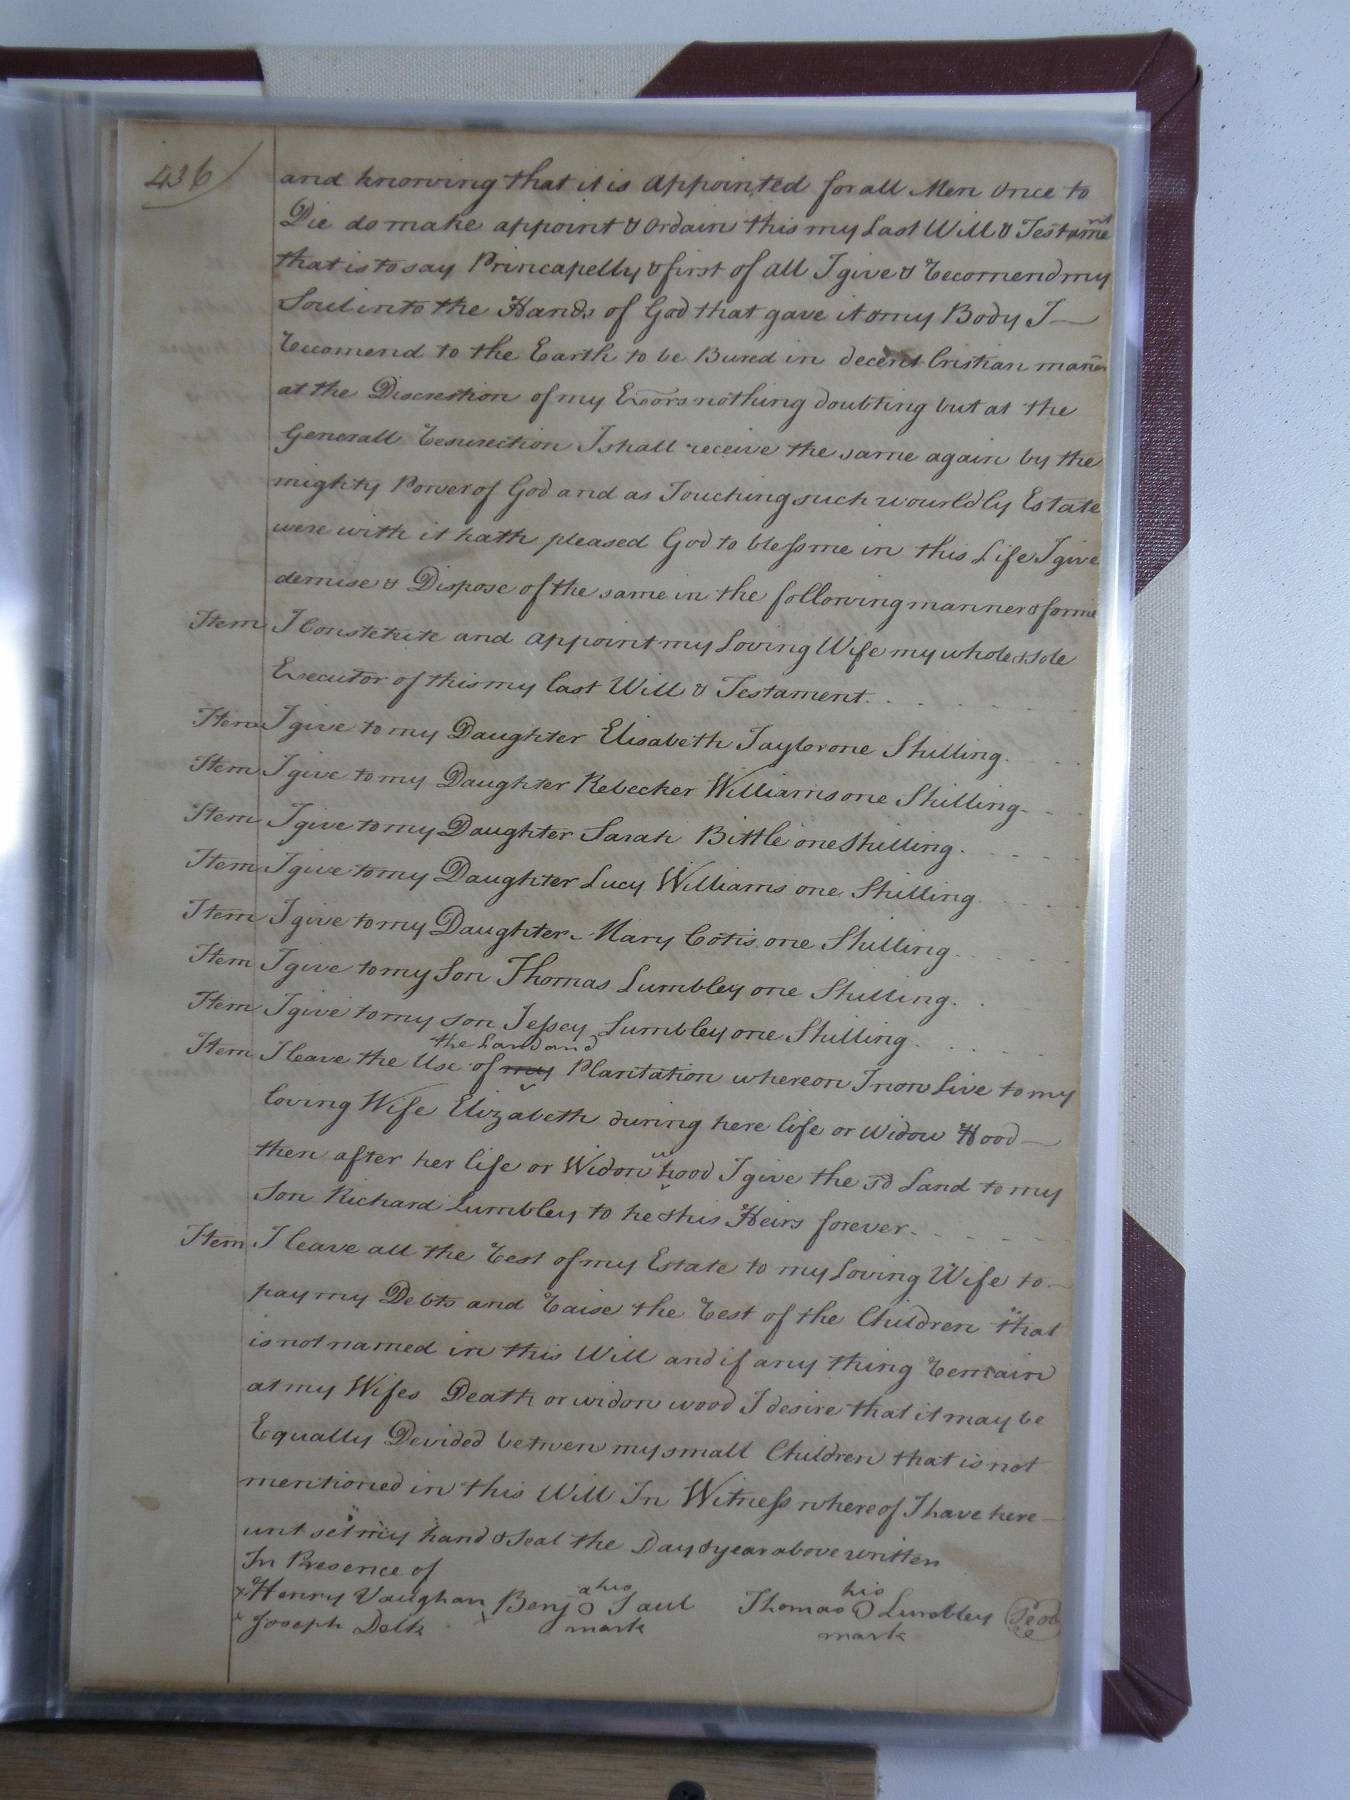 436
and knowing that it is appointed for all Men Once to
Die do make appoint & Ordain this my Last Will & Testamnt
that is to say Princapelly & first of all I give & Recomend my
Soul into the Hands of God that gave it & my Body I
Reccomend to the Earth to be Bured in decent Cristian maner
at the Discrestion of my Exors nothing doubting but at the
Generall Resurection I shall receive the same again by the
mighty Power of God and as Touching such wourldly Estate
were with it hath pleased God to bless me in this Life I give
demise & Dispose of the same in the following manner & forme
Item I Constetute and appoint my Loving Wife my whole & Sole
Executor of this my last Will & Testament.
Item I give to my Daughter Elisabeth Taylor one Shilling.
Item I give to my Daughter Rebecker Williams one Shilling
Item I give to my Daughter Sarah Bittle one Shilling.
Item I give to my Daughter Lucy Williams one Shilling
Item I give to my Daughter Mary Cotis one Shilling
Item I give to my Son Thomas Lumbley one Shilling.
Item I give to my son Jessey Lumbley one Shilling.
the Land and
Item I leave the Use of my Plantation whereon I now Live to my
loving Wife Elizabeth during here life or Widow Hood
then after her life or Widow hood I give the sd Land to my
Son Richard Lumbley to he & his Heirs forever.
Item I leave all the Rest of my Estate to my Loving Wife to
pay my Debts and Raise the Rest of the Children that
is not named in this Will and if any thing Remain
at my Wifes Death or widow wood I desire that it may be
Equally Devided betwen my small Children that is not
mentioned in this Will In Witness where of I have here
unt set my hand & Seal the Day & year above written
In Presence of
Henry Vaughan Benj his Saul Thomas his Lumbley Seal
Joseph Delk mark mark